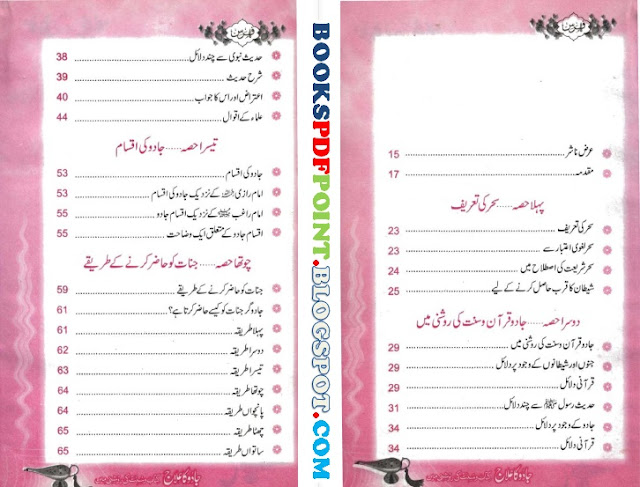 فہرست
عرض ناشر ........ 15
مقدمہ ........ 17
پہلا حصہ ..... سحر کی تعریف
سحر کی تعریف ........ 23
سحر لغوی اعتبار سے ........ 23
سحر شریعت کی اصطلاح میں ........ 24
شیطان کا قرب حاصل کرنے کے لیے ........ 25
دوسرا حصہ ..... جادو قرآن و سنت کی روشنی میں
جادو قرآن و سنت کی روشنی میں ........ 29
جنوں اور شیطانوں کے وجود پر دلائل ........ 29
قرآنی دلائل ........ 29
حدیث رسول ﷺ سے چند دلائل ........ 31
جادو کے وجود پر دلائل ........ 34
قرآنی دلائل ........ 34
جادو کا علاج
BOOKSPDFPOINT.BLOGSPOT.COM
فہرست
حدیث نبوی سے چند دلائل ........ 38
شرح حدیث ........ 39
اعتراض اور اس کا جواب ........ 40
علماء کے اقوال ........ 44
تیسرا حصہ ..... جادو کی اقسام
جادو کی اقسام ........ 53
امام رازی کے نزدیک جادو کی اقسام ........ 53
امام راغب کے نزدیک اقسام جادو ........ 55
اقسام جادو کے متعلق ایک وضاحت ........ 55
چوتھا حصہ ..... جنات کو حاضر کرنے کے طریقے
جنات کو حاضر کرنے کے طریقے ........ 59
جادوگر جنات کو کیسے حاضر کرتا ہے؟ ........ 61
پہلا طریقہ ........ 61
دوسرا طریقہ ........ 62
تیسرا طریقہ ........ 63
چوتھا طریقہ ........ 64
پانچواں طریقہ ........ 64
چھٹا طریقہ ........ 65
ساتواں طریقہ ........ 65
جادو کا علاج